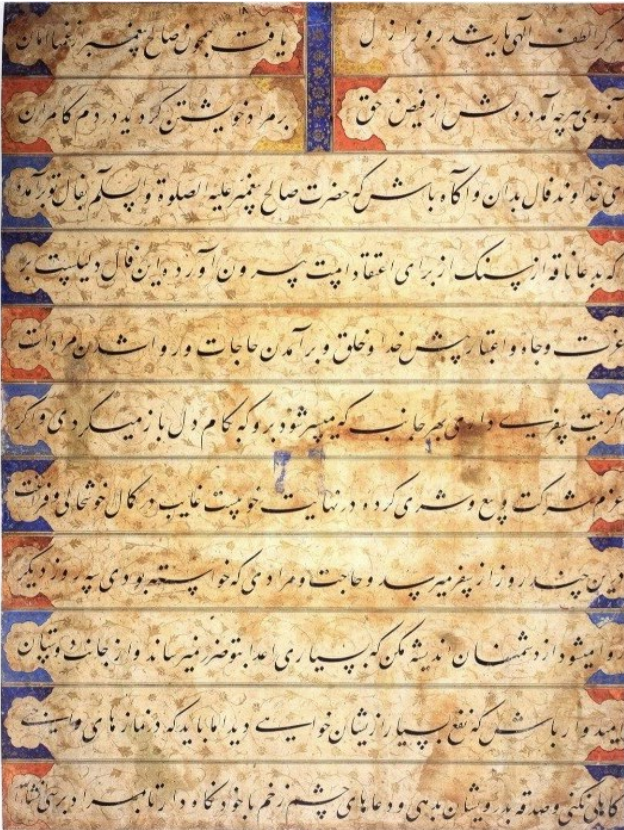 هر کرا لطف الهی یار شد روز ازل یافت همچون صالح پیغمبر از غمها امان
آرزوی هرچه آمد در دلش از فیض حق بر مراد خویشتن گردید در دم کامران
ای خداوند فال بدان و آگاه باش که حضرت صالح پیغمبر علیه الصلوة والسلم بفال تو برآمده
که بدعا ناقه از سنک از برای اعتقاد امت بیرون آورده این فال دلیلست بر
عزت و جاه و اعتبار پیش خدا و خلق و برآمدن حاجات و روا شدن مرادات
اگر نیت سفری داری بهر جانب که میسر شود برو که بکام دل باز میکردی و اگر
عزم شرکت و بیع و شری کرد و در نهایت خوبیست غایب در کمال خوشحالی و فراغت
درین چند روز از سفر میرسد و حاجت و مرادی که خواسته بودی سه روز دیگر
روا میشود از دشمنان اندیشه مکن که بسیاری اعدا بتو ضرر نمیرساند و از جانب دوستان
امیدوار باش که نفع بسیار ازیشان خواهی دید اما باید که در نمازهای واجبی
کاهلی نکنی و صدقه بدرویشان بدهی و دعاهای چشم زخم با خود نگاه دار تا بمراد برسی